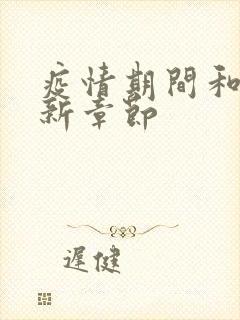 疫情期間和
新章節
遲健